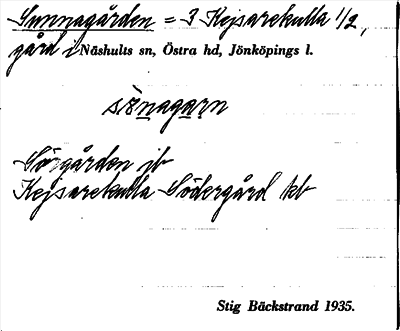 Sunnagården = 3 Kejsarekulla 1/2,
gård i Näshults sn, Östra hd, Jönköpings l.
sènagarn
Sörgården jb
Kejsarekulla Södergård kb
Stig Bäckstrand 1935.